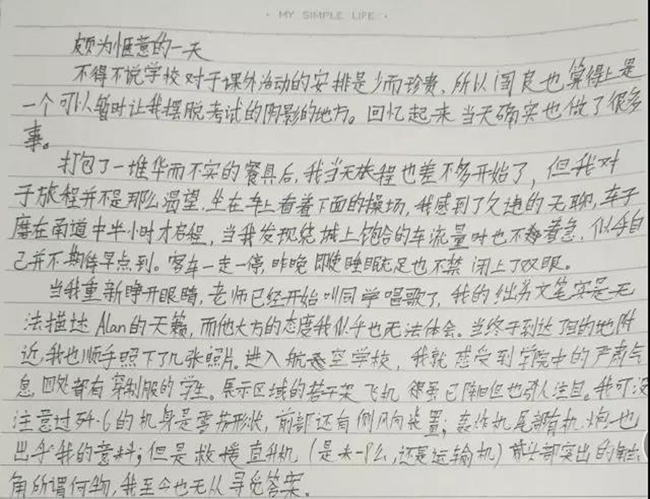 · MY SIMPLE LIFE ·
颇为惬意的一天
不得不说学校对于课外活动的安排是少而珍贵,所以阅良也算得上是
一个可以暂时让我摆脱考试的阴影的地方。回忆起来当天确实也做了很多
事。
打包了一堆华而不实的餐具后,我当天旅程也差不多开始了,但我对
于旅程并不是那么渴望,坐在车上看着下面的操场,我感到了久违的无聊,车子
磨在甬道中半小时才启程,当我发现绕城上饱和的车流量时也不着急,似乎自
己并不期待早点到。客车一走一停,昨晚即使睡眠充足也不禁闭上了双眼。
当我重新睁开眼睛,老师已经开始叫同学唱歌了,我的拙劣文笔实是无
法描述Alan的天籁,而他大方的态度我似乎也无法体会。当终于到达目的地附
近,我也顺手照下了几张照片。进入航空学校,我就感受到学院中的严肃气
息,四处都有穿制服的学生。展示区域的若干架飞机很虽已陈旧但也引人注目。我可没
注意过歼-6的机身是雪茄形状,前部还有侧风向装置;轰炸机尾部有机炮也
出乎我的意料;但是救援直升机(是米-8么,还是运输机)前头部突出的触
角所谓何物,我至今也无从寻觅答案。